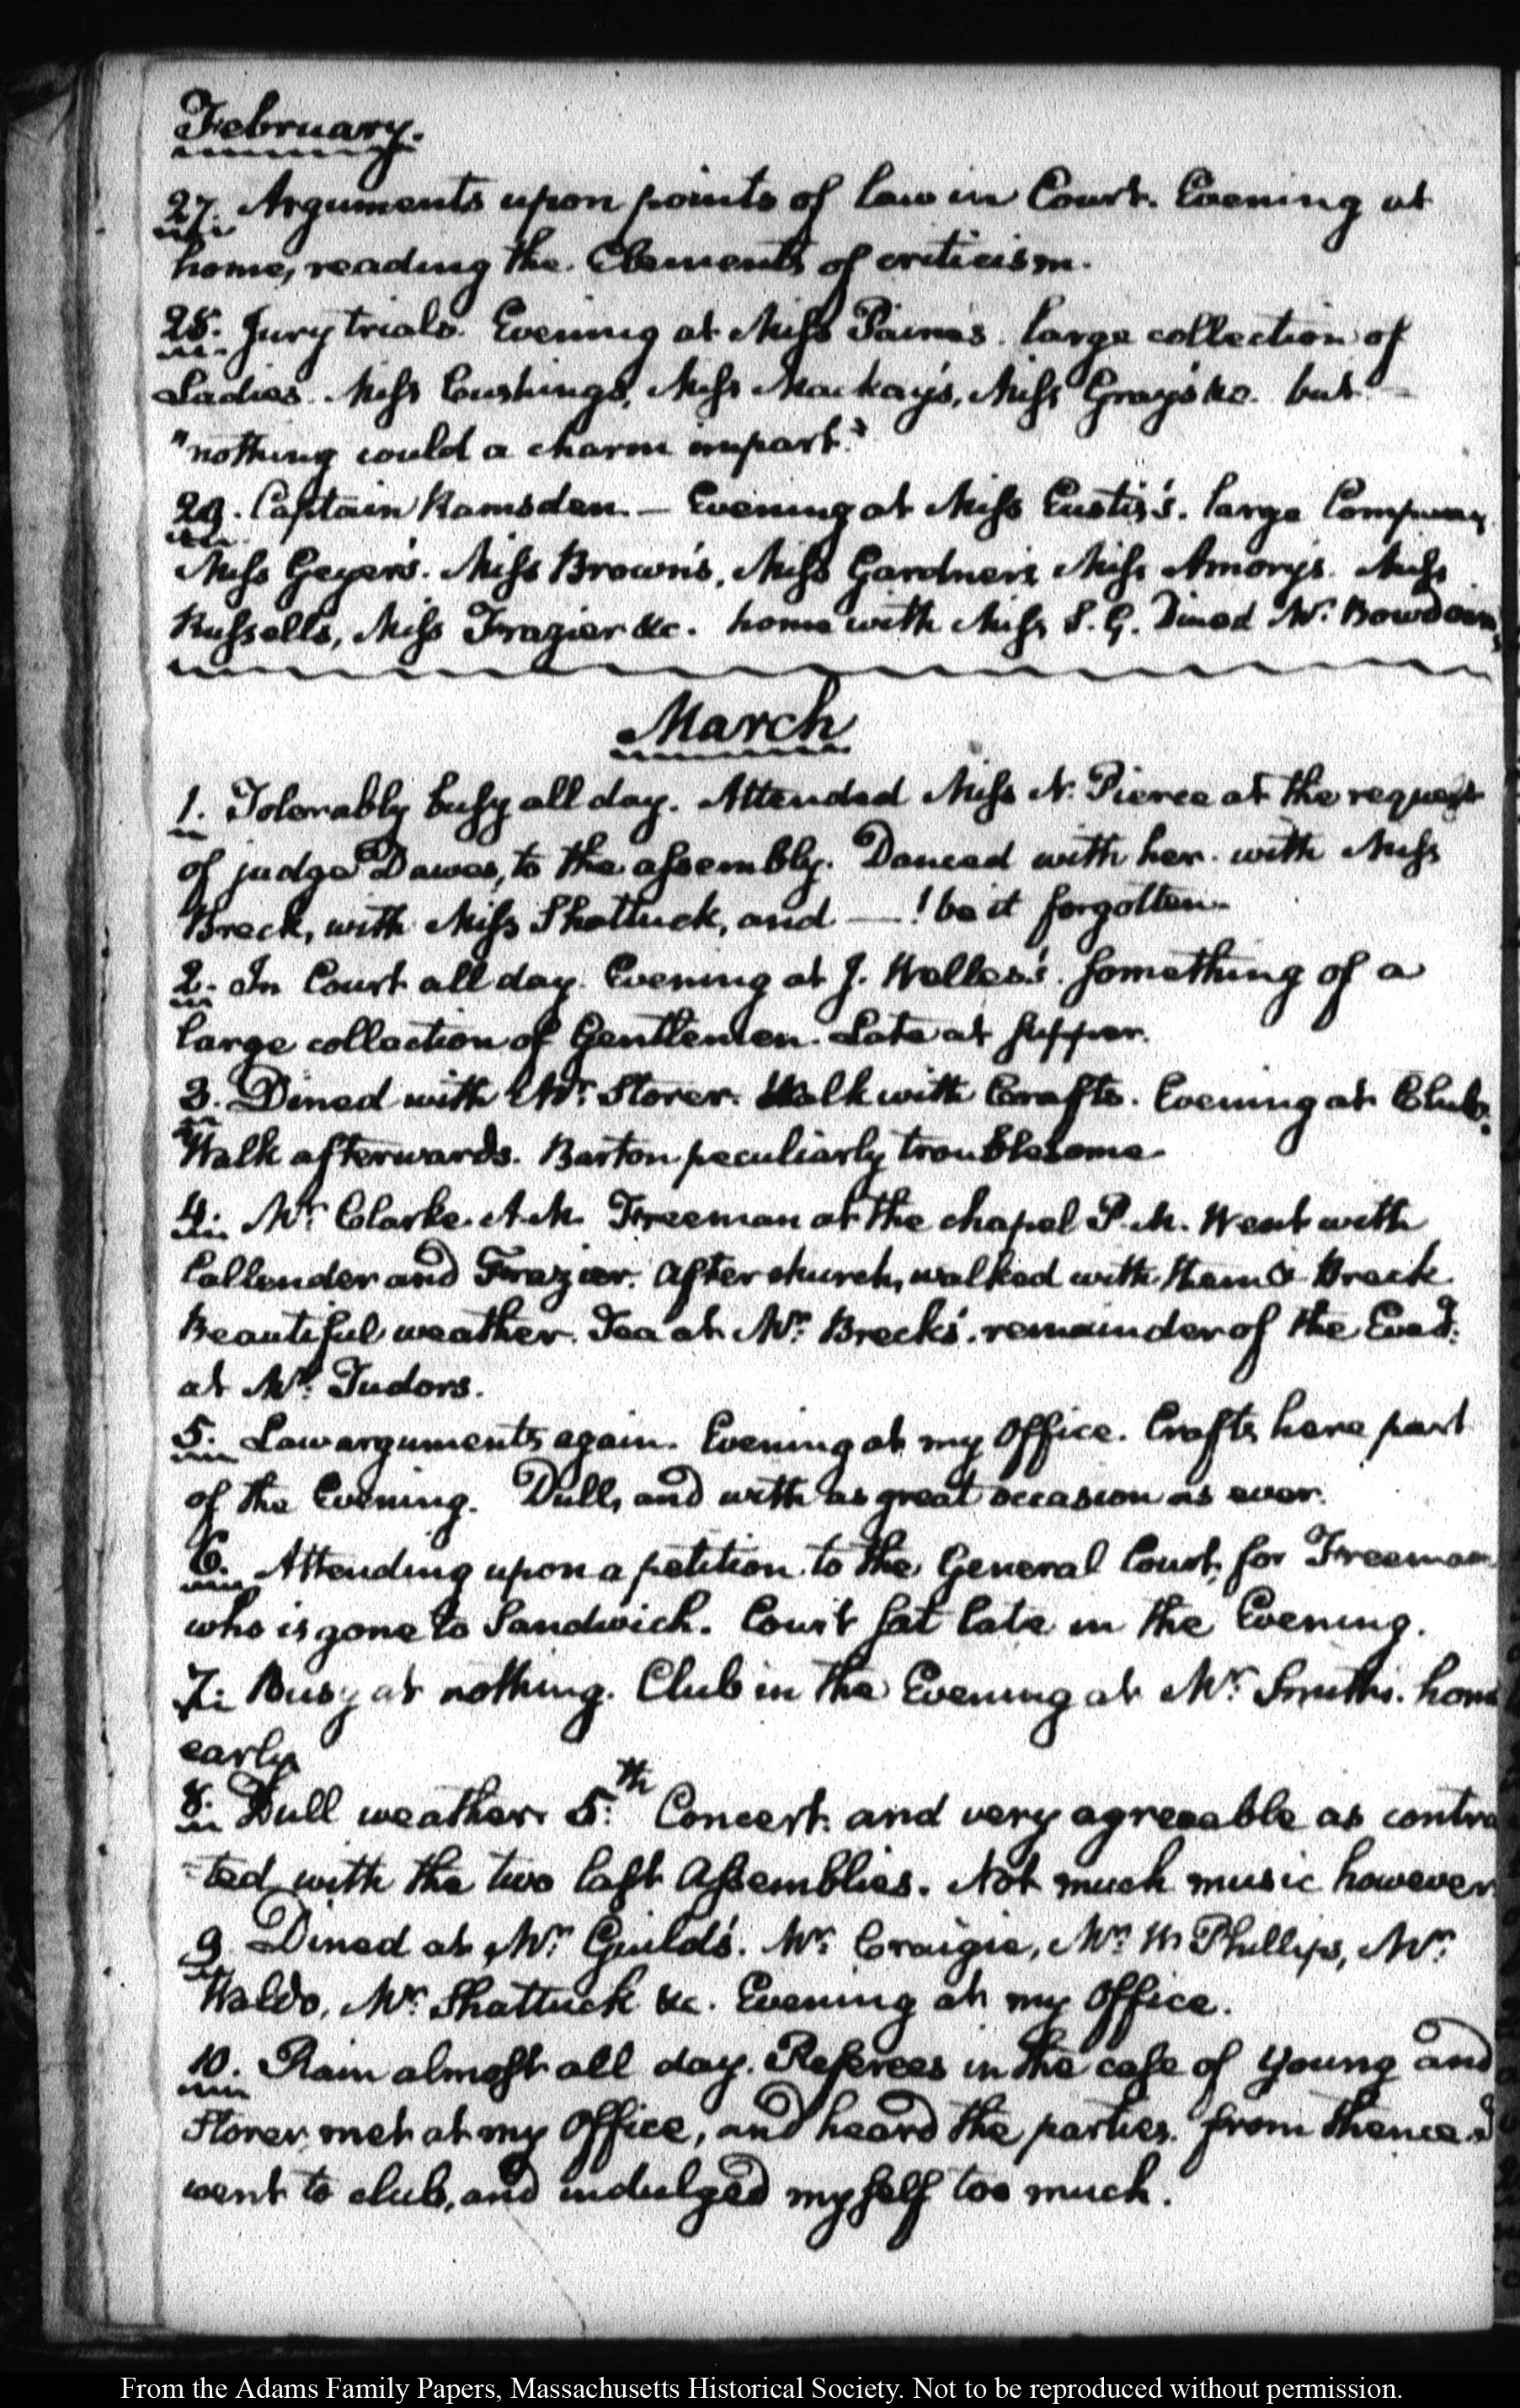 February.
27. Arguments upon points of law in Court. Evening at
home, reading the Elements of criticism.
28. Jury trials. Evening at Miss Paine's. large collection of
Ladies. Miss Cushings, Miss Mackay's, Miss Gray's &c. but
"nothing could a charm impart."
29. Captain Ramsden. — Evening at Miss Eustis's. large Company
Miss Geyer's. Miss Brown's, Miss Gardner's Miss Amory's. Miss
Russells, Miss Frazier &c. home with Miss S. G. Dined Mr. Bowdoin's
March
1. Tolerably busy all day. Attended Miss N. Pierce at the request
of judge Dawes, to the assembly. Danced with her. with Miss
Breck, with Miss Shattuck, and —! be it forgotten.
2. In Court all day. Evening at J. Welles's. something of a
large collection of Gentlemen. Late at supper.
3. Dined with Mr. Storer. Walk with Crafts. Evening at Club.
Walk afterwards. Barton peculiarly troublesome.
4. Mr. Clarke. A.M. Freeman at the chapel P.M. Went with
Callender and Frazier. After church, walked with them & Breck
Beautiful weather. Tea at Mr. Breck's. remainder of the Eveg.
at Mr. Tudors.
5. Law arguments again. Evening at my Office. Crafts here part
of the Evening. Dull, and with as great occasion as ever.
6. Attending upon a petition to the General Court, for Freeman
who is gone to Sandwich. Court sat late in the Evening.
7. Busy at nothing. Club in the Evening at Mr. Smith's. home
early
8. Dull weather. 5.th Concert. and very agreeable as contra
-ted with the two last Assemblies. Not much music however
9. Dined at Mr. Guild's. Mr. Craigie, Mr. W Phillips, Mr.
Waldo, Mr. Shattuck &c. Evening at my Office.
10. Rain almost all day. Referees in the case of Young and
Storer, met at my Office, and heard the parties. from thence
went to club, and indulged myself too much.
From the Adams Family Papers, Massachusetts Historical Society. Not to be reproduced without permission.